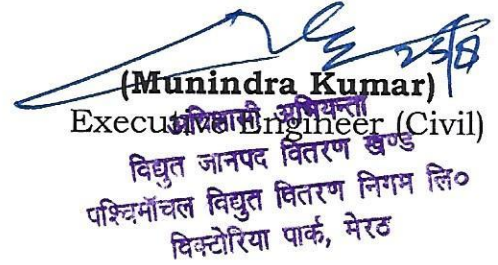 25/8
(Munindra Kumar)
Executive Engineer (Civil)
अधिशासी अभियन्ता
विद्युत जानपद वितरण खण्ड
पश्चिमाँचल विद्युत वितरण निगम लि०
विक्टोरिया पार्क, मेरठ